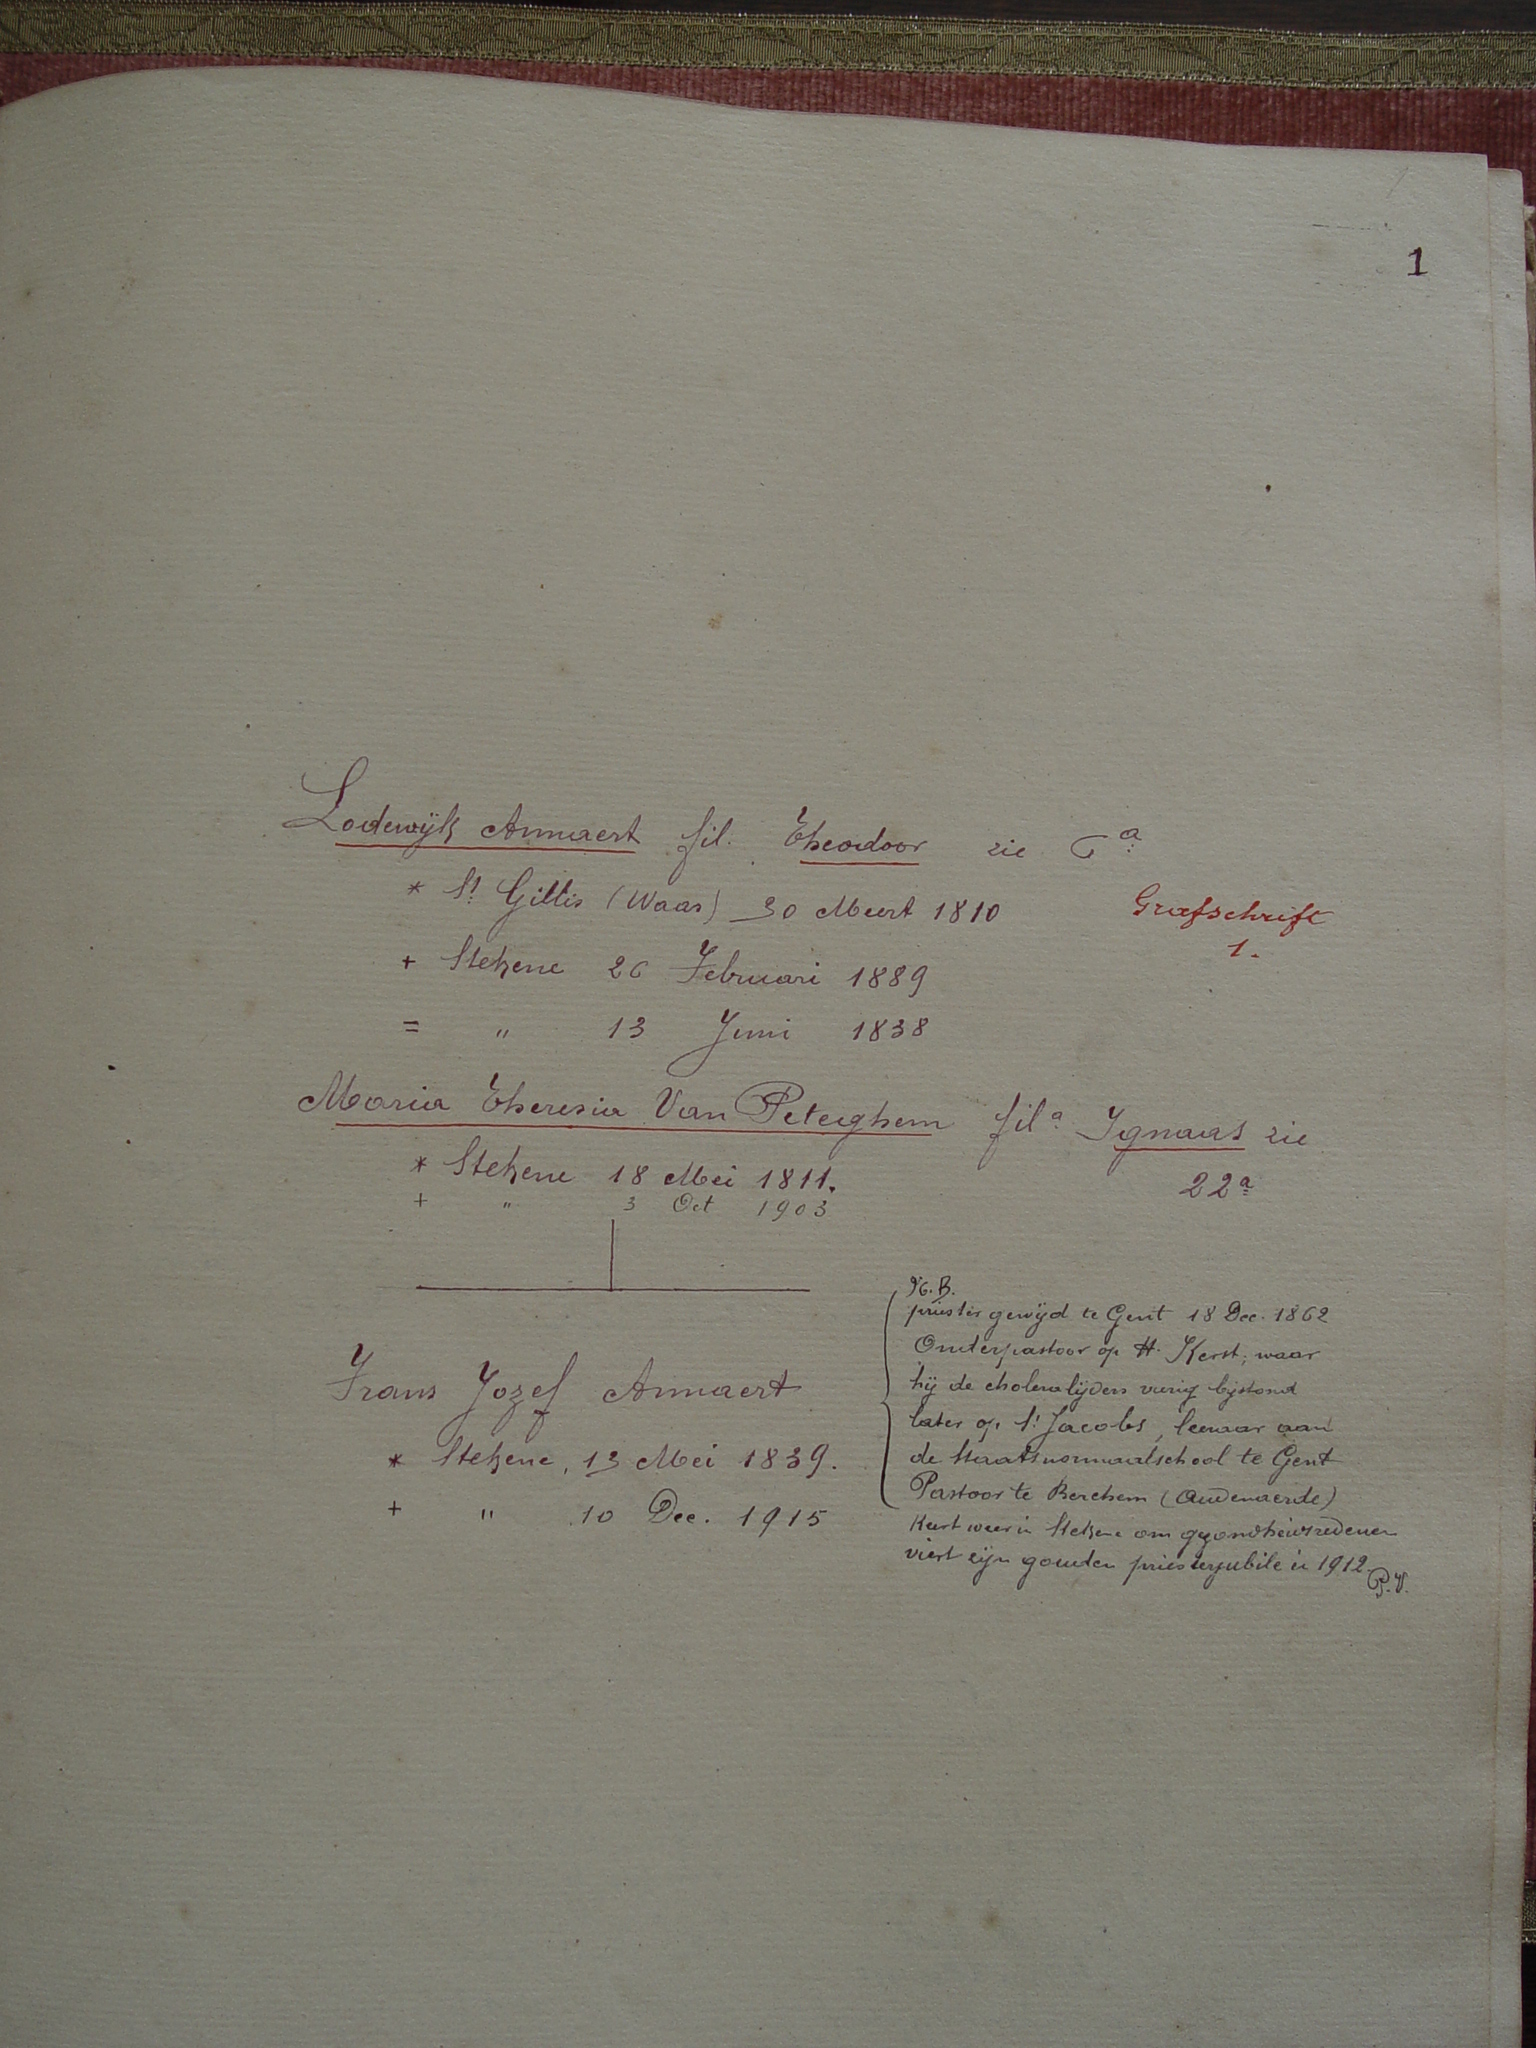 1
Lodewijk Annaert fil. Theodoor zie 6ª
* St Gillis (Waas) 30 Meert 1810
Grafschrift
1.
+ Stekene 26 Februari 1889
= " 13 Juni 1838
Maria Theresia Van Peteghem filª Ignaas zie
22ª
* Stekene 18 Mei 1811.
+ " 3 Oct 1903
Frans Jozef Annaert
* Stekene, 13 Mei 1839.
+ " 10 Dec. 1915
N.B.
priester gewijd te Gent 18 Dec. 1862
Onderpastoor op H. Kerst, waar
hij de choleralijders vurig bijstond
later op St Jacobs, leeraar aan
de Staatsnormaalschool te Gent
Pastoor te Berchem (Audenaerde)
Keert weer in Stekene om gezondheidsredenen
viert zijn gouden priesterjubilé in 1912.
P.V.